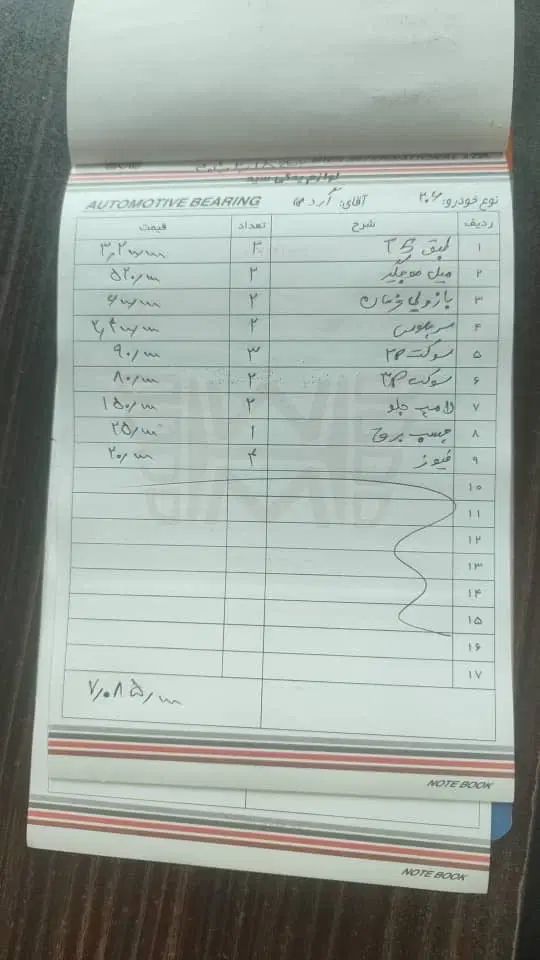 لوازم یدکی سید
AUTOMOTIVE BEARING آقای: نوع خودرو: ۲۰۶
ردیف شرح تعداد قیمت
۱ طبق T5 ۲ ۳٫۲۰۰٫۰۰۰
۲ میل موجگیر ۲ ۵۲۰٫۰۰۰
۳ بازویی فرمان ۲ ۶۰۰٫۰۰۰
۴ ۲ ۲٫۴۰۰٫۰۰۰
۵ سوکت ۲P ۳ ۹۰٫۰۰۰
۶ سوکت ۳P ۲ ۸۰٫۰۰۰
۷ لامپ جلو ۲ ۱۵۰٫۰۰۰
۸ چسب برق ۱ ۲۵٫۰۰۰
۹ فیوز ۴ ۲۰٫۰۰۰
۱۰
۱۱
۱۲
۱۳
۱۴
۱۵
۱۶
۱۷
۷٫۰۸۵٫۰۰۰
NOTE BOOK
NOTE BOOK